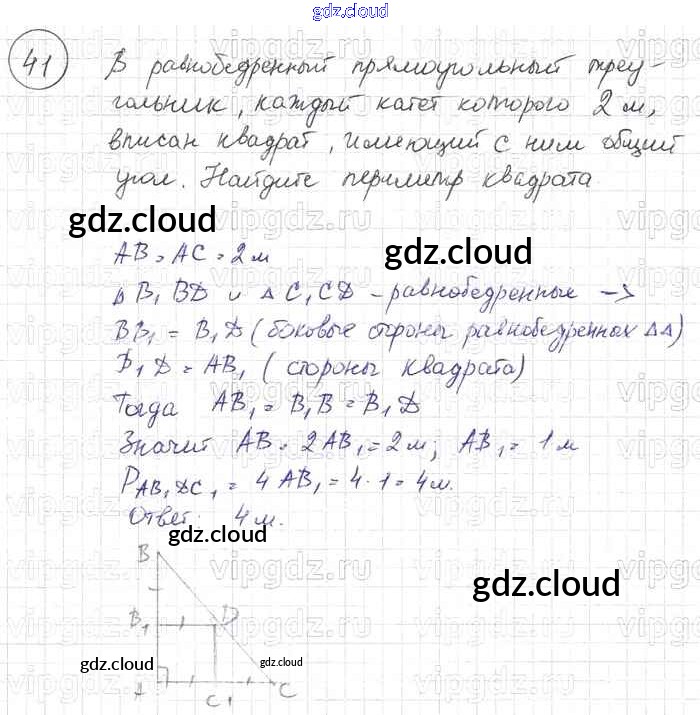 gdz.cloud
41 В равнобедренный прямоугольный треу-
гольник, каждый катет которого 2 м,
вписан квадрат, имеющий с ним общий
угол. Найдите периметр квадрата
gdz.cloud
gdz.cloud
AB = AC = 2 м
△ B₁BD и △ C₁CD - равнобедренные →
BB₁ = B₁D (боковые стороны равнобедренных △△)
B₁D = AB₁ (стороны квадрата)
Тогда AB₁ = B₁B = B₁D
Значит AB = 2AB₁ = 2 м; AB₁ = 1 м
P AB₁DC₁ = 4 AB₁ = 4 · 1 = 4 м.
Ответ: 4 м.
gdz.cloud
B
gdz.cloud
B₁ D
gdz.cloud gdz.cloud
A C₁ C